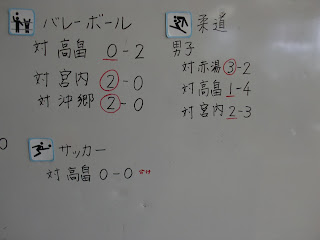 バレーボール
対 高畠 0-2
対 宮内 2-0
対 沖郷 2-0
柔道
男子
対赤湯 3-2
対高畠 1-4
対宮内 2-3
サッカー
対 高畠 0-0